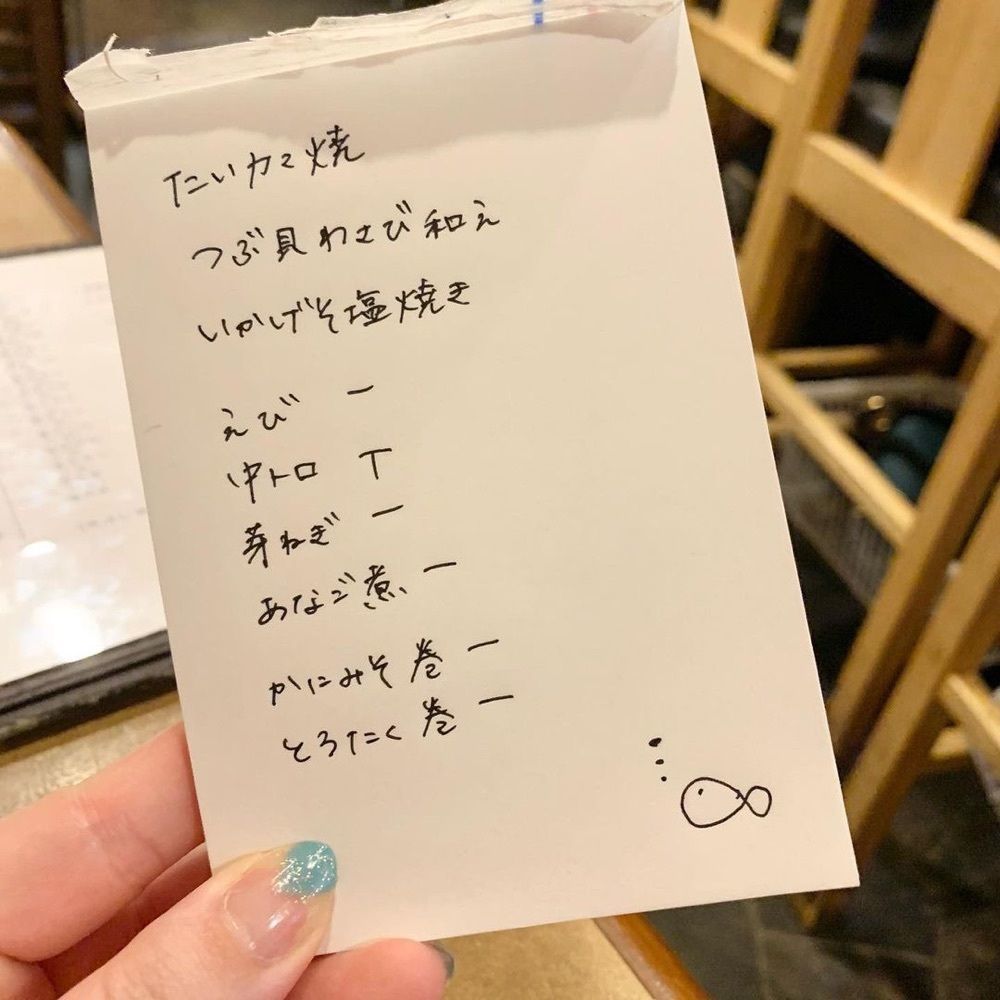 たいカマ焼
つぶ貝わさび和え
いかげそ塩焼き
えび 一
中トロ T
芽ねぎ 一
あなご煮 一
かにみそ巻 一
とろたく巻 一